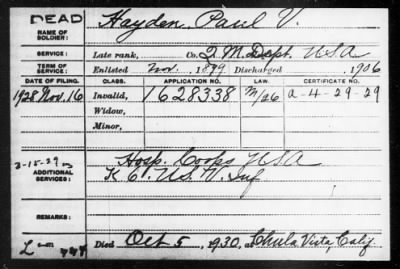 DEAD
NAME OF SOLDIER: Hayden, Paul V.
SERVICE: Late rank, Co. Q.M. Dept. USA
TERM OF SERVICE: Enlisted Nov., 1899 Discharged , 1906
DATE OF FILING. CLASS. APPLICATION NO. LAW. CERTIFICATE NO.
1928 Nov. 16 Invalid, 1628338 a-4-29-29
Widow,
Minor,
2-15-29
ADDITIONAL SERVICES: Hosp. Corps USA
K 6. U.S. V. Inf
REMARKS:
L
Died Oct 5, 1930, at Chula Vista, Calif.